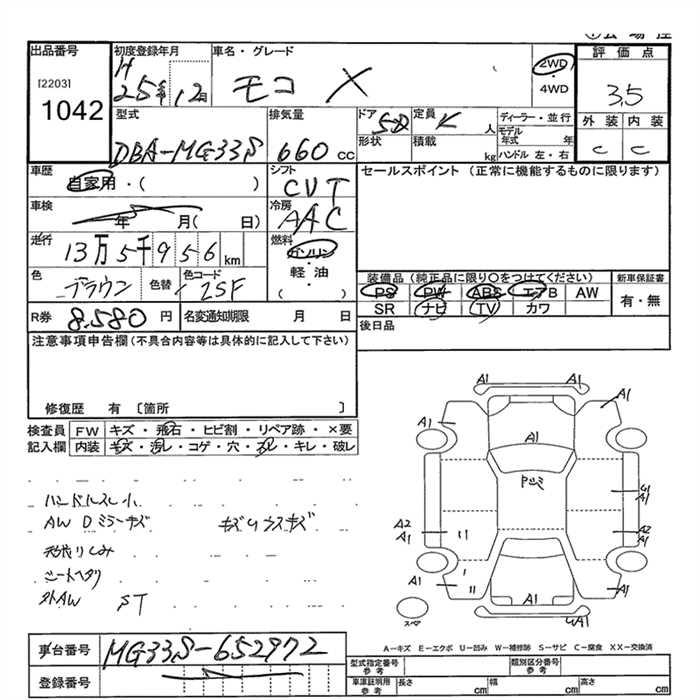 出品番号
[2203]
1042
初度登録年月
H
25年 12月
車名・グレード
モコ X
2WD
4WD
評価点
3.5
外装 内装
C C
型式
DBA-MG33S
排気量
660 cc
ドア
5D
形状
定員
人
積載
kg
ディーラー・並行
モデル
年式 年
ハンドル 左・右
車歴
自家用・( )
シフト
CVT
セールスポイント (正常に機能するものに限ります)
車検
年 月( 日)
冷房
AAC
走行
13万5千956 km
燃料
ガソリン
軽・油
( ・ )
色
ブラウン
色替
色コード
ZSF
装備品 (純正品に限り○をつけてください)
PS PW ABS エアB AW
SR ナビ TV カワ
新車保証書
有・無
R券
8,580 円
名変通知期限 月 日
後日品
注意事項申告欄(不具合内容等は具体的に記入して下さい)
修復歴 有 〔箇所 〕
検査員
記入欄
FW キズ・飛石・ヒビ割・リペア跡・×要
内装 キズ・汚レ・コゲ・穴・スレ・キレ・破レ
ハンドルスレ小
AW Dミラーキズ
シートヘタリ
外AW ST
A1 A1 A1
A1
A1
A1
A2
A1
A2
A1
A1 A1 A1
A-キズ E-エクボ U-凹み W-補修跡 S-サビ C-腐食 XX-交換済
車台番号
MG33S-652972
登録番号
型式指定番号
参考
類別区分番号
参考
車庫証明用
参考
長さ cm
幅 cm
高さ cm